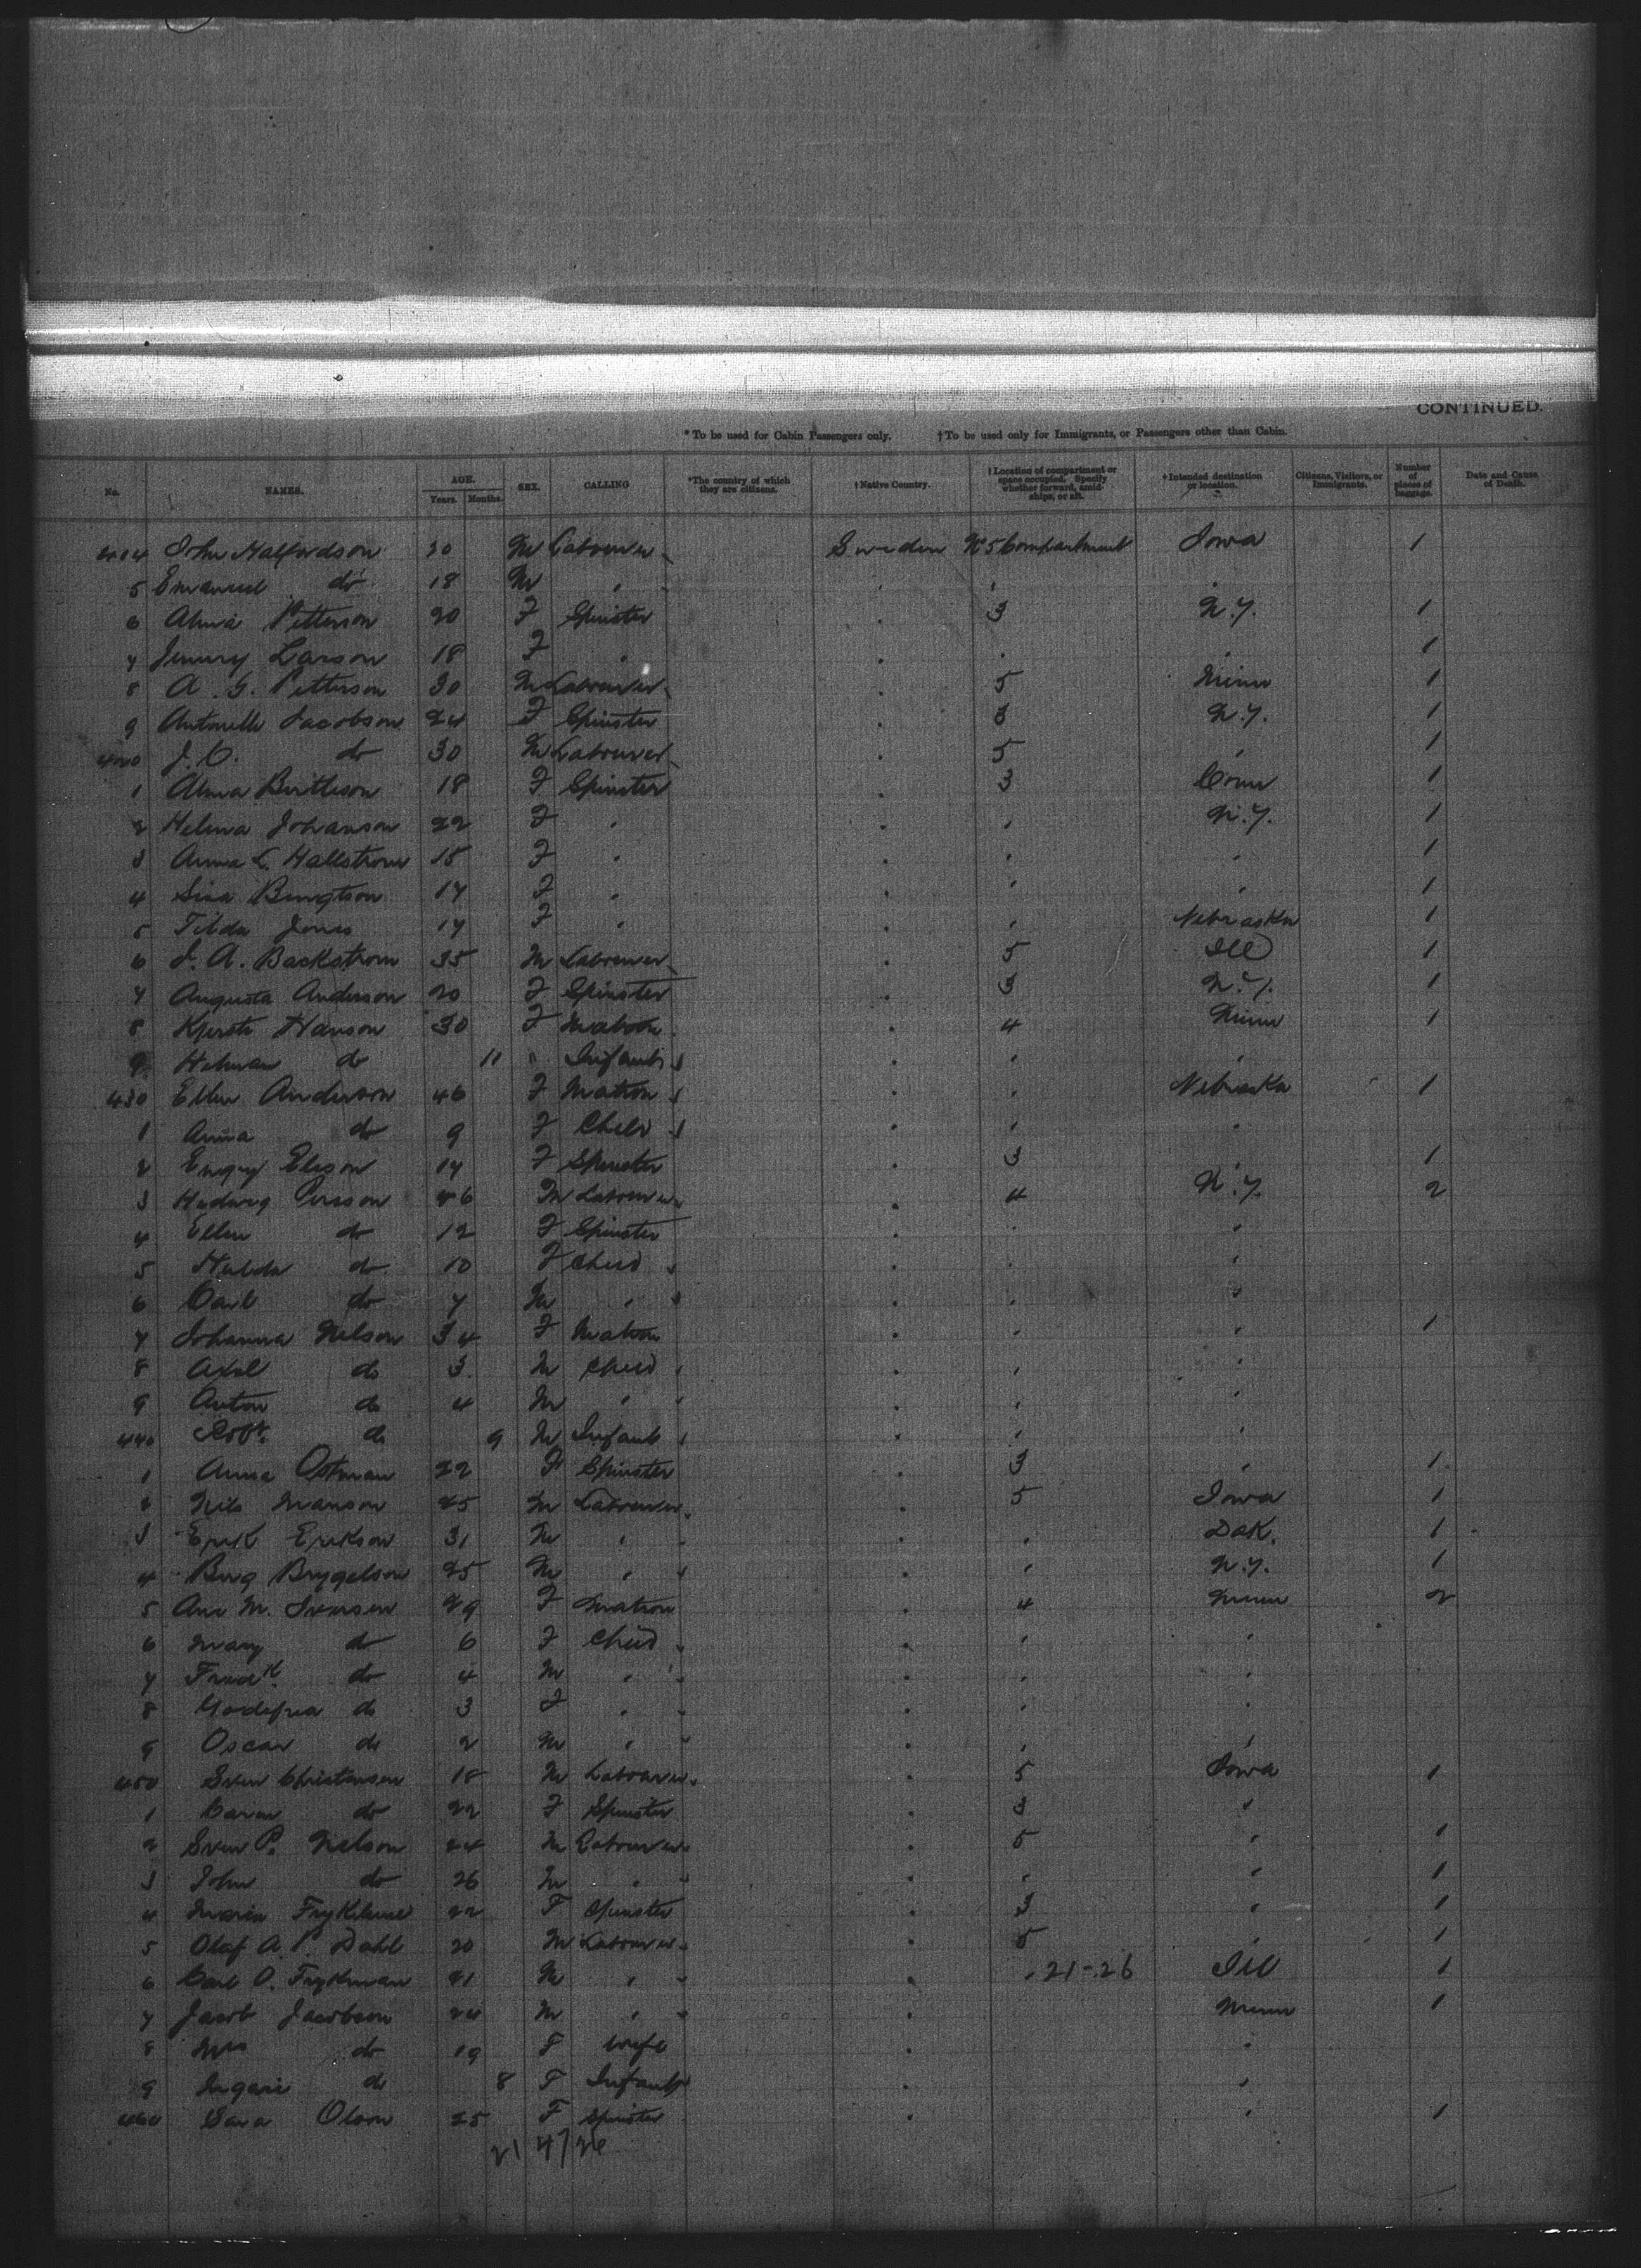 CONTINUED.
*To be used for Cabin Passengers only. †To be used only for Immigrants, or Passengers other than Cabin.
No. NAMES. AGE. Years. Months. SEX. CALLING *The country of which they are citizens. †Native Country. †Location of compartment or space occupied. Specify whether forward, amidships, or aft. †Intended destination or location. Citizens, Visitors, or Immigrants. Number of pieces of baggage. Date and Cause of Death.
John Halfordson M Labourer Sweden No 5 Compartment Iowa 1
5 Emanuel do 18 M
6 Petterson 20 F Spinster 3 N.Y. 1
7 Larson 18 F 1
8 A. G. Petterson 30 M Labourer 5 Minn 1
9 Jacobson 24 F Spinster 3 N.Y. 1
420 J. do 30 M Labourer 5 1
1 Alma 18 F Spinster 3 Conn 1
2 Helena Johanson 22 F N.Y. 1
3 Anna C. Hallstrom F 1
4 Bengtson 17 F 1
5 Tilda Jones 17 F Nebraska 1
6 J. A. Backstrom 35 M Labourer 5 Ill 1
7 Augusta Anderson 20 F Spinster 3 N.Y. 1
8 Hanson 30 F Matron 4 Minn 1
9 do 11 " Infant
430 Ellen Anderson 46 F Matron Nebraska 1
1 Anna do 9 F Child
2 17 F Spinster 3 1
3 Hedwig Persson 46 M Labourer 4 N.Y. 2
4 Ellen do 12 F Spinster
5 Hulda do 10 F Child
6 Carl do 7 M
7 Johanna Nelson 34 F Matron 1
8 Axel do 3 M Child
9 Anton do 4 M
440 Robt. do 9 M Infant
1 Anna Ostman 22 F Spinster 3 1
2 Nils Manson M Labourer 5 Iowa 1
3 Erik Erikson 31 M Dak. 1
4 25 M N.Y. 1
5 Ane M. F Matron 4 Minn 2
6 Mary do 6 F Child
7 Fredk. do 4 M
8 do 3 F
9 Oscar do 2 M
450 Sven Christensen 18 M Labourer 5 Iowa 1
1 Karen do 22 F Spinster 3
2 Sven P. Nelson 24 M Labourer 5 1
3 John do 26 M 1
4 Maria 22 F Spinster 3 1
5 Olaf A. P. Dahl 20 M Labourer 5 1
6 Carl O. Frykman 21 M 21-26 Ill 1
7 Jacob Jacobson 24 M Minn 1
8 Mrs do 19 F Wife
9 do 8 F Infant
460 Sara Olson 25 F Spinster 1
21 47 26